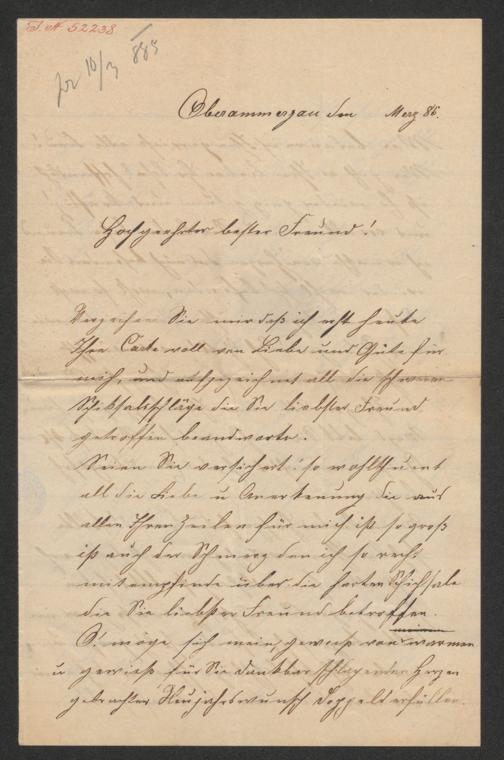 I. N 52238
10/3 885
Oberammergau den Merz 86.
Hochgeehrter bester Freund!
Verzeihen Sie mir daß ich erst heute
Ihre Carte voll von Liebe und Güte für
mich, und aufgezeichnet all die schweren
Schiksalsschläge die Sie liebster Freund
getroffen beandworte.
Seien Sie versichert so wohlthuent
all die Liebe u Anerkenung die aus
allen Ihren Zeilen für mich ist so groß
ist auch der Schmerz den ich so recht
mitempfinde über die harten Schicksale
die Sie liebster Freund betroffen.
O! möge sich mein, gewiß von warmen
u gewiß für Sie dankbar schlagenden Herzen
gebrachter Neujahrswunsch doppeld erfüllen.